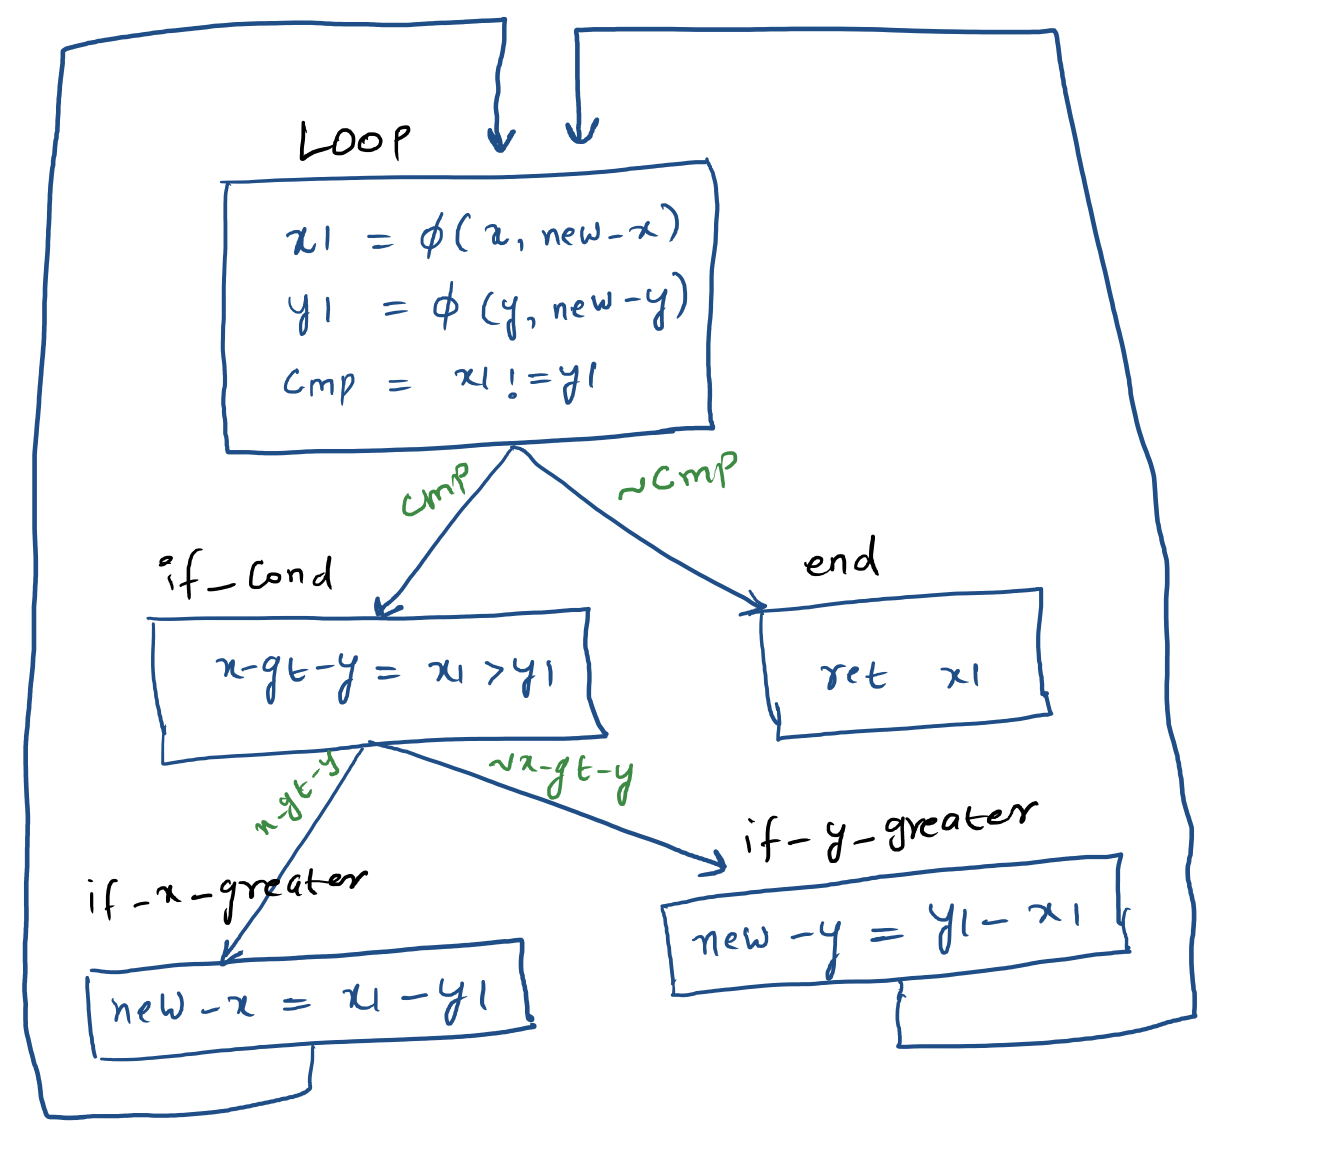 Loop
x1 = ϕ(x, new-x)
y1 = ϕ(y, new-y)
cmp = x1 != y1
cmp
~cmp
if_cond
end
x-gt-y = x1 > y1
ret x1
x-gt-y
~x-gt-y
if-y-greater
if-x-greater
new-y = y1 - x1
new-x = x1 - y1